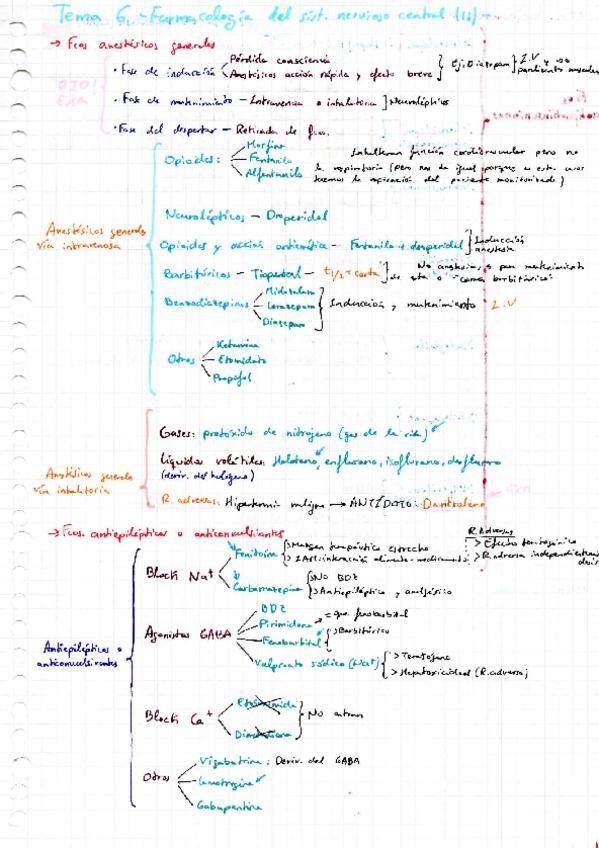 Tema 6.- Farmacología del sist. nervioso central (II)-
→ Fcos anestésicos generales
OJO!
• Fase de inducción
Pérdida consciencia
Anestésicos acción rápida y efecto breve
Ej: Diazepam
I.V
• Fase de mantenimiento - Intravenosa o inhalatoria ] Neurolépticos
• Fase del despertar - Retirada de fcos.
Anestésicos generales
vía intravenosa
Opioides:
Morfina
Fentanilo
Alfentanilo
función cardiovascular pero no
la respiratoria (pero nos da igual porque a estos
la respiración del paciente monitorizado)
Neurolépticos - Droperidol
Opioides y acción - Fentanilo + droperidol
Inducción
anestesia
Barbitúricos - Tiopental - t 1/2 = corta
No o para mantenimiento
de esta o "coma barbitúrico"
Benzodiazepinas
Midazolam
Lorazepam
Diazepam
Inducción y mantenimiento I.V
Otros
Ketamina
Etomidato
Propofol
Anestésicos generales
vía inhalatoria
Gases: protóxido de nitrógeno (gas de la risa)
Líquidos volátiles: Halotano, enflurano, isoflurano, desflurano
(deriv. del halógeno)
R. adversas: Hipertermia maligna → ANTÍDOTO: Dantroleno
→ Fcos. antiepilépticos o anticonvulsiantes
Antiepilépticos o
anticonvulsivantes
Block Na+
Fenitoína
> Margen terapéutico estrecho
interacción alimento-medicamento
R. Adversas
> Efecto teratogénico
> R. adversa independiente
dosis
Carbamazepina
> No BDZ
> Antiepiléptico y analgésico
Agonistas GABA
BDZ
Pirimidona = que fenobarbital
Fenobarbital > Barbitúrico
Valproato sódico (Na+)
> Teratógeno
> Hepatotoxicidad (R. adversa)
Block Ca+
Etosuximida
No entran
Otros
Vigabatrina: Deriv. del GABA
Lamotrigina
Gabapentina